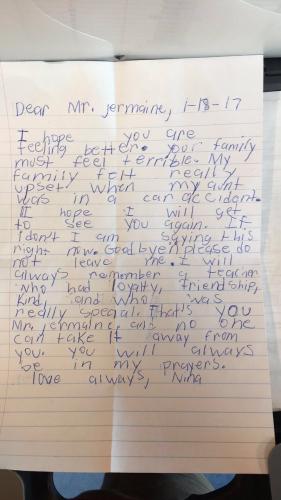 Dear Mr. jermaine, 1-18-17
I hope you are
feeling better. your family
must feel terrible. My
family felt really
upset when my aunt
was in a car accident.
I hope I will get
to see you again. If
I don't I am saying this
right now. Goodbye n please do
not leave me. I will
always remember a teacher
who had loyalty, friendship,
kind, and who was
really special. That's you
Mr. jermaine, and no one
can take it away from
you. you will always
be in my prayers.
love always, Nina